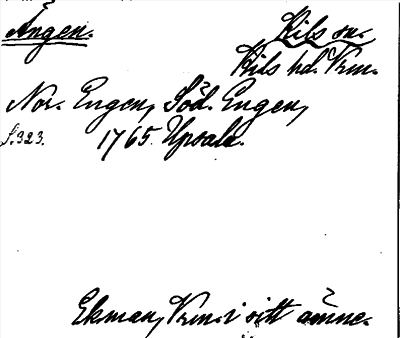 Ängen. Kils sn.
Kils hd. Vrm.
Nor. Engen, Söd. Engen,
S. 323. 1765 Upsala.
Ekman, Vrm. i sitt ämne.